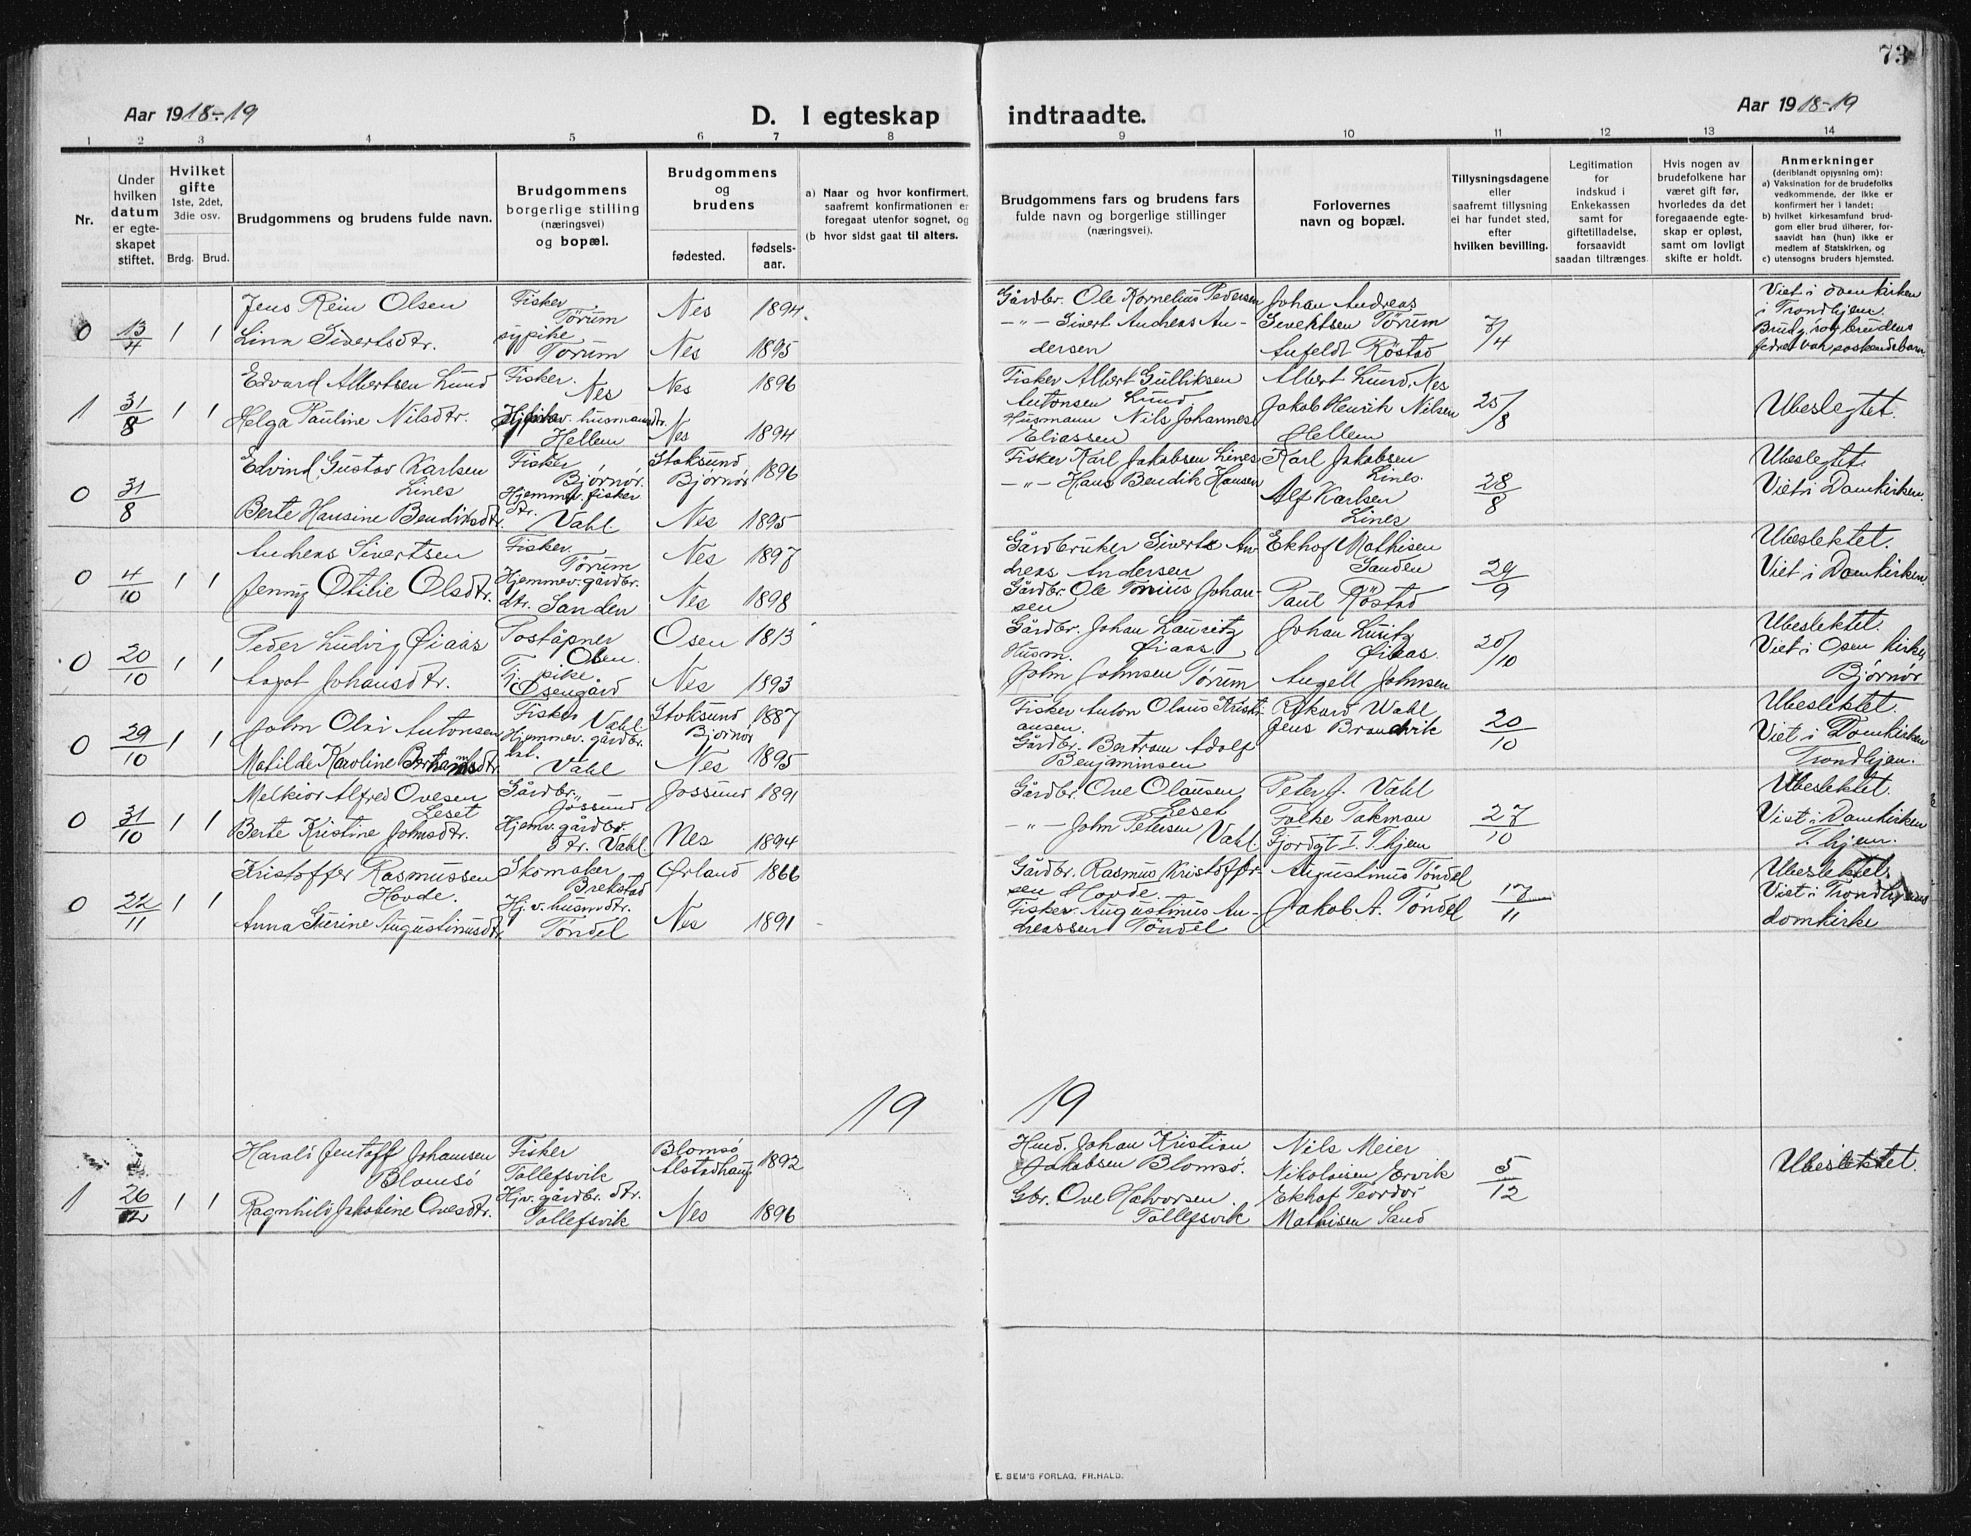 73
Aar 1918-19
D. I egteskap
indtraadte.
Aar 1918-19
1 2 3 4 5 6 7 8 9 10 11 12 13 14
Nr.
Under hvilken datum er egteskapet stiftet.
Hvilket gifte 1ste, 2det, 3die osv.
Brdg. Brud.
Brudgommens og brudens fulde navn.
Brudgommens borgerlige stilling (næringsvei) og bopæl.
Brudgommens og brudens
fødested. fødsels-aar.
a) Naar og hvor konfirmert, saafremt konfirmationen er foregaat utenfor sognet, og
(b hvor sidst gaat til alters.
Brudgommens fars og brudens fars fulde navn og borgerlige stillinger (næringsvei).
Forlovernes navn og bopæl.
Tillysningsdagene eller saafremt tillysning ei har fundet sted, efter hvilken bevilling.
Legitimation for indskud i Enkekassen samt for giftetilladelse, forsaavidt saadan tiltrænges.
Hvis nogen av brudefolkene har været gift før, hvorledes da det foregaaende egteskap er opløst, samt om lovligt skifte er holdt.
Anmerkninger (deriblandt opysning om):
a) Vaksination for de brudefolks vedkommende, der ikke er konfirmert her i landet;
b) hvilket kirkesamfund brudgom eller brud tilhører, forsaavidt han (hun) ikke er medlem af Statskirken, og
c) utensogns bruders hjemsted.
0 13/4 1 1
Jens Rein Olsen
Fisker Tørum
Nes 1894.
Gårdbr. Ole Kornelius Pedersen
Johan Andreas
7/4
Viet i domkirken
Lina Sivertsdtr.
sypike Tørum
Nes 1895
-"- Sivert Andreas An-
dersen
Sivertsen Tørum
Anfeldt Röstad
i Trondhjem.
Brudg.s og brudens
fedre var søskendebarn
1 31/8 1 1
Edvard Albertsen Lund
Fisker. Nes
Nes 1896
Fisker Albert Gulliksen
Antonsen Lund
Albert Lund, Nes
25/8
Ubeslegtet.
Helga Pauline Nilsdtr.
Hellem
Nes 1894
Husmann Nils Johannes
Eliassen
Jakob Henrik Nilsen
Hellem
0 31/8
Edvind Gustav Karlsen
Lines
Fisker Bjørnør.
Stoksund Bjørnør 1896
Fisker Karl Jakobsen Lines
Karl Jakobsen
Lines.
28/8
Ubeslegtet.
Berte Hansine Bendiksdtr.
Hjemmev. fisker
dtr. Vahl
Nes 1895
-"- Hans Bendik Hansen
Alf Karlsen
Lines
Viet i Domkirken.
0 4/10 1 1
Andreas Sivertsen
Fisker. Tørum
Nes 1897
Gårdbruker Sivert An
dreas Andersen
Ekhof Mathisen
Sanden
29/9
Ubeslektet.
Jenny Otilie Olsdtr.
Hjemmev. gårdbr.
dtr. Sanden
Nes 1898
Gårdbr. Ole Tonius Johan-
sen
Paul Röstad
Viet i Domkirken
0 20/10 1 1
Peder Ludvig Øiaas
Poståpner
Osen
Osen 1813
Gårdbr. Johan Lauritz
Øiaas
Johan Luritz
Øiaas.
20/10
Ubeslektet.
Viet i Osen kirke
Bjørnør
Johansdtr.
Tj pike
Osengård
Nes 1893
Husm.
John Johnsen Tørum
Angell Johnsen
0 29/10 1 1
John Olai Antonsen
Fisker Vahl
Stoksund Bjørnør 1887
Fisker Anton Olaus Kristi
ansen.
Rikard Vahl
20/10
Ubeslektet.
Matilde Karoline
Hjemmev. gårdbr.
Vahl
Nes 1895
Gårdbr. Bertram Adolf
Benjaminsen
Jens Brandvik
Viet i Domkirken
Trondhjem.
0 31/10 1 1
Melkior Alfred Ovesen
Leset
Gårdbr. Jössund
Jossund 1891
Gårdbr. Ove Olausen
Leset
Peter J. Vahl
27/10
Ubeslektet.
Berte Kristine Johnsdtr.
Hjemv. gårdbr.
dtr. Vahl.
Nes 1894
-"- John Petersen Vahl.
Folke Takman
Fjordgt I. T.hjem
Viet i Domkirken
T.hjem.
0 22/11 1 1
Kristoffer Rasmussen
Hovde.
Skomaker
Brekstad
Ørland 1866
Gårdbr. Rasmus Kristoffer-
sen Hovde.
Augustinus Töndel
17/11
Ubeslektet.
Anna Augustinusdtr.
Hj.v. husmdtr.
Töndel
Nes 1891
Fisker Augustinus An-
dreassen Töndel
Jakob A. Töndel
Viet i Trondhjems
domkirke
19
19
1 26/12 1 1
Harald Jentoff Johansen
Blomsö
Fisker
Tollefsvik
Blomsö
Alstadhaug 1892
Johan Kristian
Jakobsen Blomsö.
Nils Meier
Nikolaisen Ervik
5/12
Ubeslektet.
Ragnhild Jakobine Ovesdtr.
Hjv. gårdbr. dtr.
Tollefsvik
Nes 1896
Gbr. Ove Halvorsen.
Tollefsvik
Ekhof Teordor
Mathisen Sand
E. SEM'S FORLAG, FR.HALD.